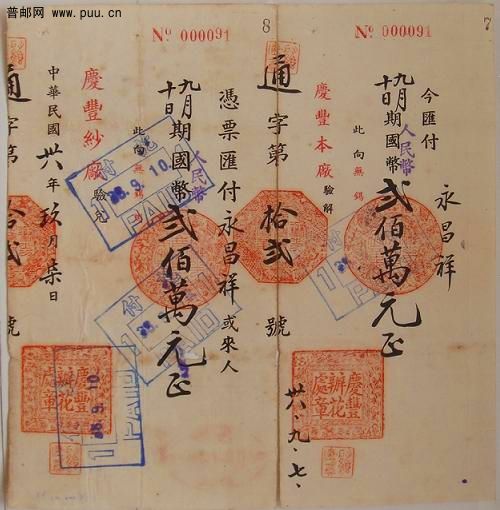 普邮网 www.puu.cn
7
№ 000091
今匯付
永昌祥
九月十日期國幣貳佰萬元正
人民幣
此向無錫
慶豐本廠驗解
卅八、九、七、
慶豐辦花處章
8
通字第拾貳號
№ 000091
憑票匯付永昌祥或來人
九月十日期國幣貳佰萬元正
人民幣
此向無錫
慶豐紗廠驗兌
中華民國卅八年玖月柒日
慶豐辦花處章
通字第拾貳號
付訖
38.9.10
PAID
付
PAID
PAID